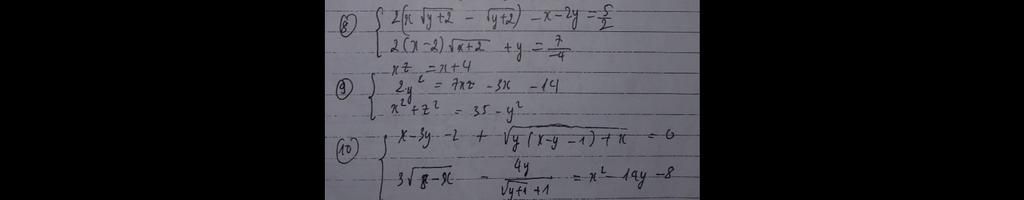 ⑧ { 2(x √(y+2) - √(y+2)) - x - 2y = 5/2
2(x-2)√(x+2) + y = 7/-4
⑨ { xz = x+4
2y² = 7xz - 3x - 14
x² + z² = 35 - y²
⑩ { x - 3y - 2 + √(y(x-y-1)+x) = 0
3√(8-x) - 4y/(√(y+1) + 1) = x² - 14y - 8